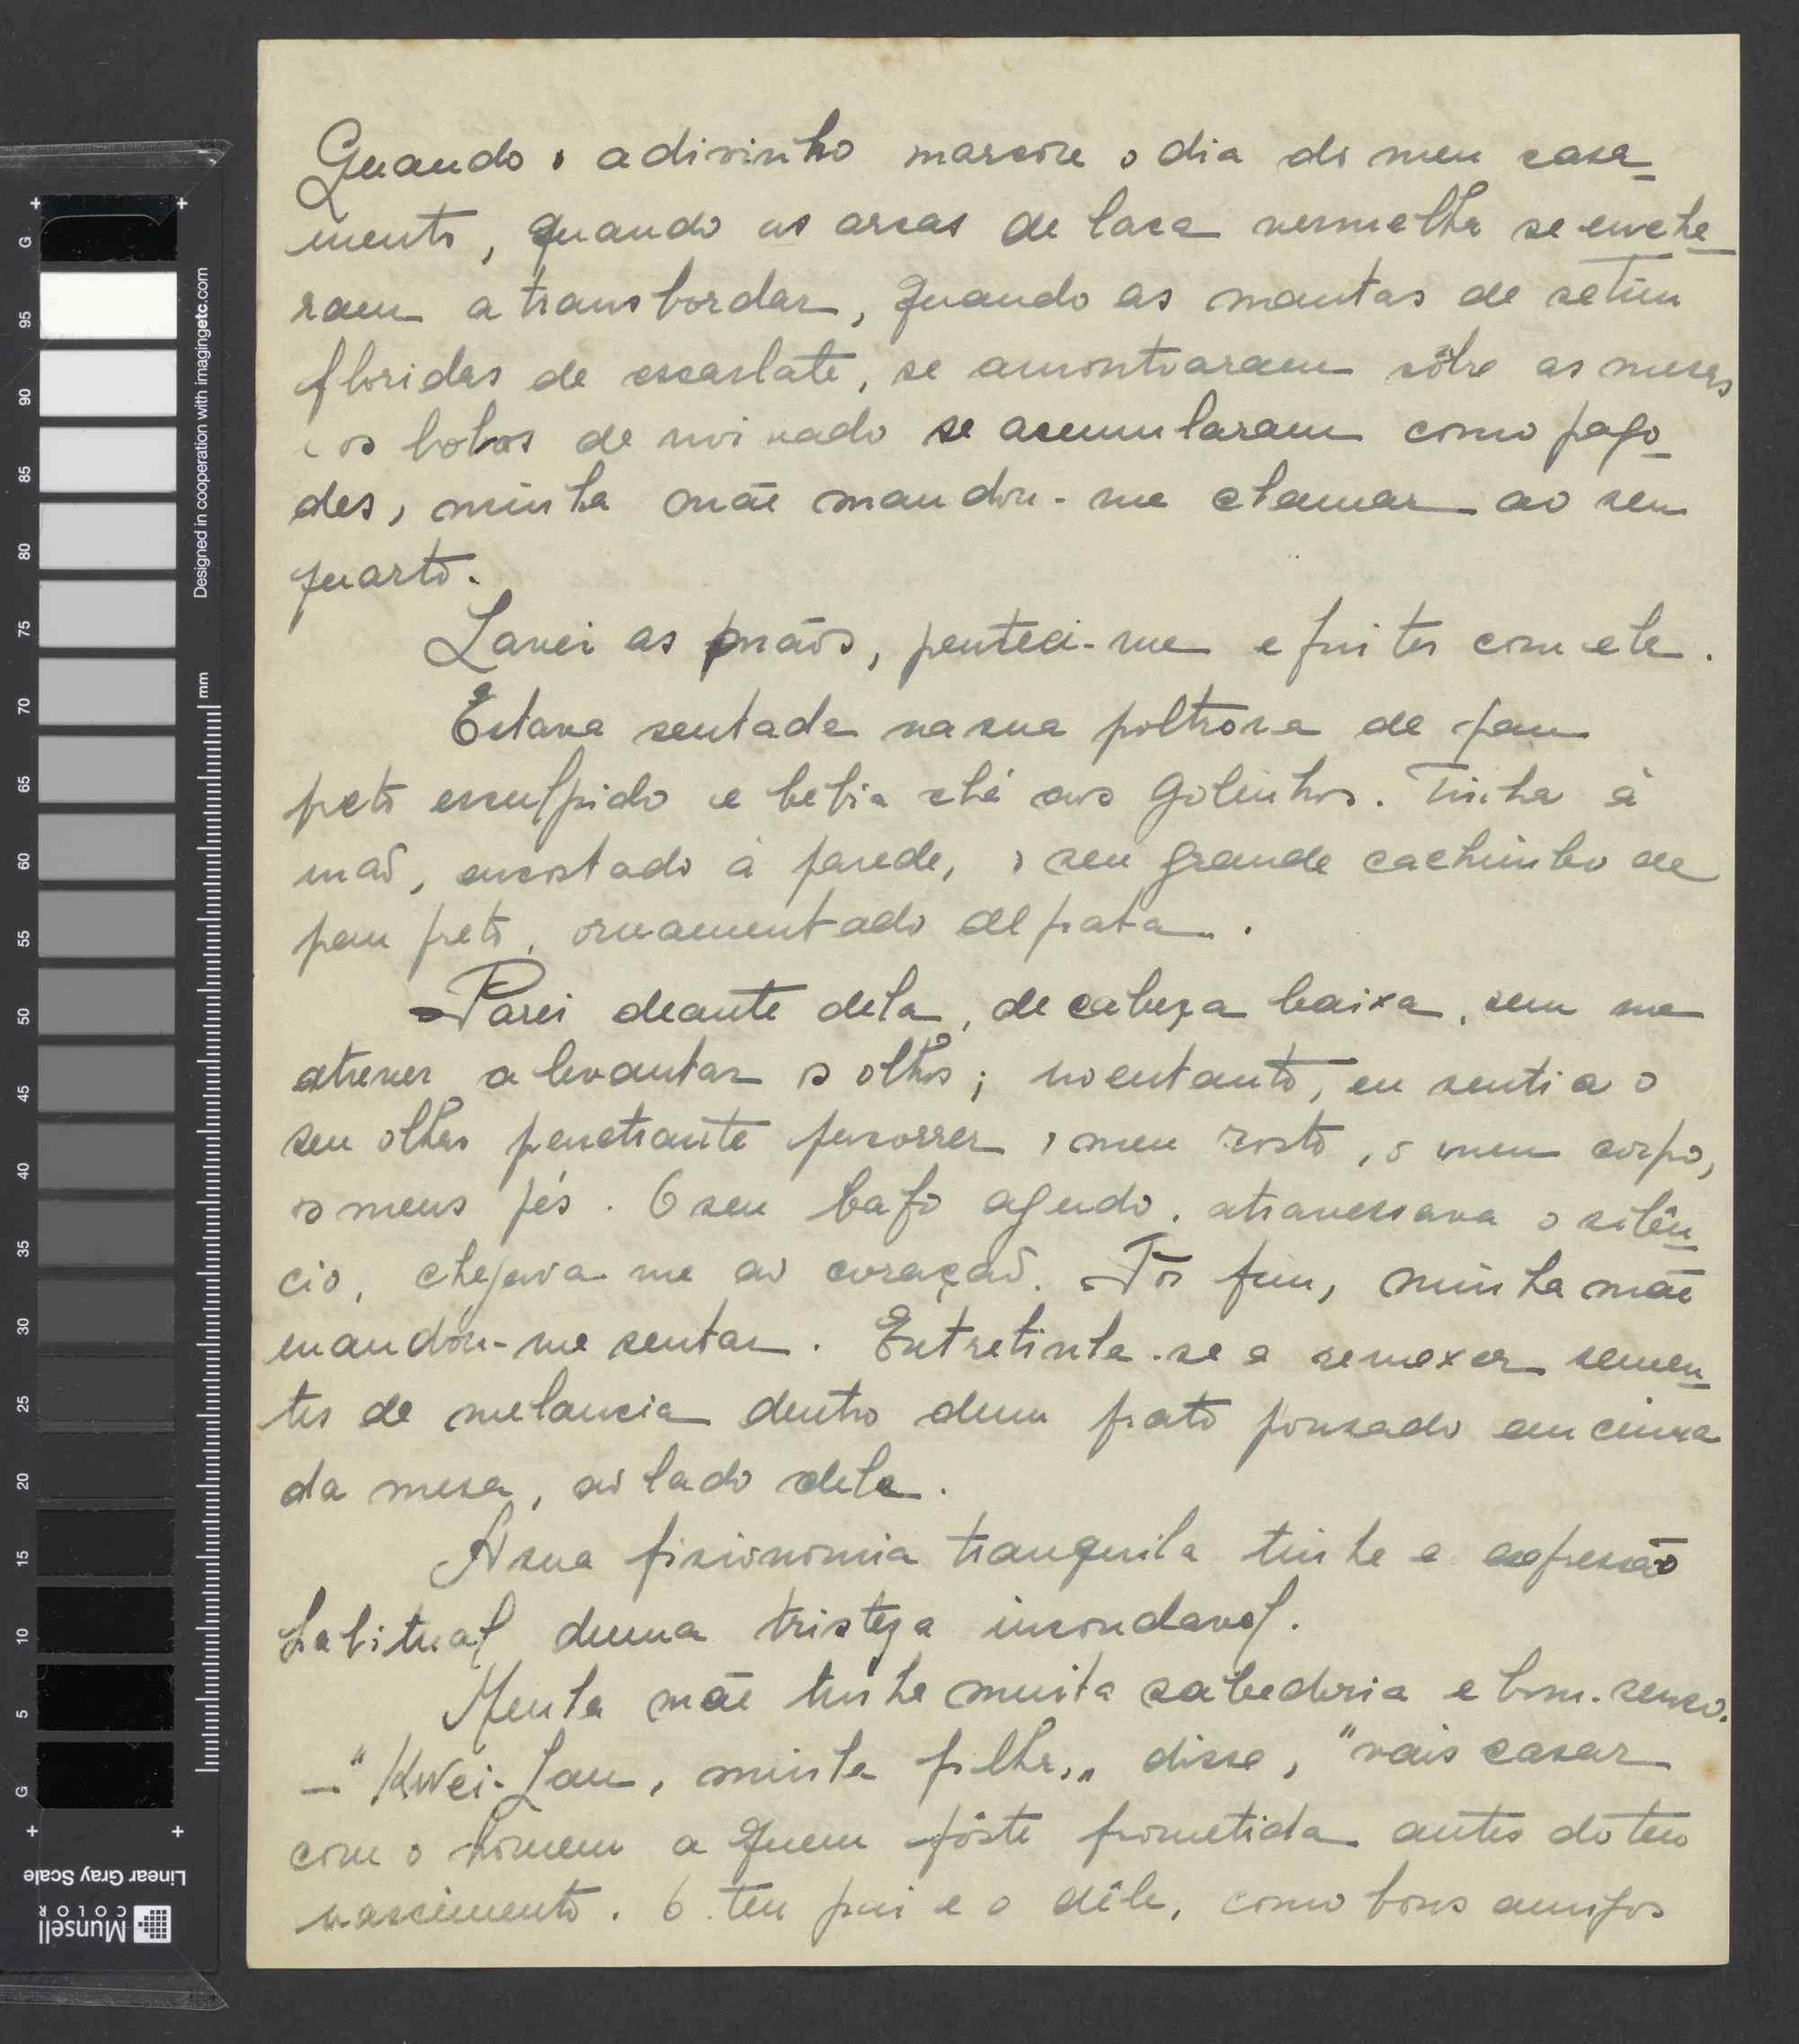 Quando o adivinho marcou o dia do meu casa-
mento, quando as arcas de laca vermelha se enche-
ram a transbordar, quando as mantas de setim
floridas de escarlate, se amontoaram sôbre as mesas
e os bolos de noivado se acumularam como pago-
des, minha mãe mandou-me chamar ao seu
quarto.
Lavei as mãos, penteei-me e fui ter com ela.
Estava sentada na sua poltrona de pau
preto esculpido e bebia chá aos golinhos. Tinha à
mão, encostado à parede, o seu grande cachimbo de
pau preto, ornamentado de prata.
Parei deante dela, de cabeça baixa, sem me
atrever a levantar os olhos; no entanto, eu sentia o
seu olhar penetrante percorrer o meu rosto, o meu corpo,
os meus pés. O seu bafo agudo, atravessava o silên-
cio, chegava-me ao coração. Por fim, minha mãe
mandou-me sentar. Entretinha-se a remexer semen-
tes de melancia dentro dum prato pousado em cima
da mesa, ao lado dela.
A sua fisionomia tranquila tinha a expressão
habitual duma tristeza insondavel.
Menha mãe tinha muita sabedoria e bom-senso.
— "Kwei-Lan, minha filha," disse, "vais casar
com o homem a quem fôste prometida antes do teu
nascimento. O teu pai e o dêle, como bons amigos
Designed in cooperation with imagingetc.com
mm
G
95
90
85
80
75
70
65
60
55
50
45
40
35
30
25
20
15
10
5
G
Linear Gray Scale
Munsell
COLOR